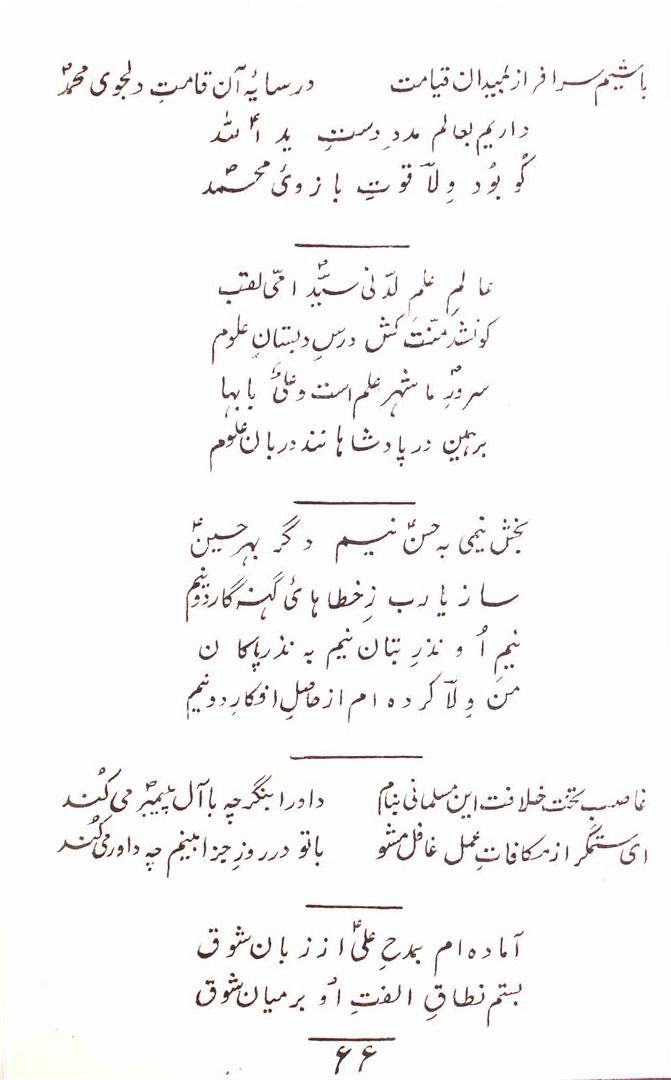 باشیم سرافراز بمیدان قیامت در سایۂ آن قامتِ دلجوی محمدؐ
داریم بعالم مددِ دستِ ید اللهؑ
کو بُود وِلاؔ قوتِ بازوئ محمدؐ
عالمِ علمِ لدّنی سیّدِؐ امّی لقب
کو نشد منّت کش درسِ دبستانِ علوم
سرورِؐ ما شهر علم است و علیؑ بابها
برهمین در پادشاهانند دربان علوم
بخش نیمی به حسنؑ نیم دگر بهر حسینؑ
ساز یارب زِ خطا هائ گنه گار دو نیم
نیمِ اُو نذرِ بتان نیم به نذرِ پاکان
من وِلاؔ کرده ام از حاصلِ افکارِ دو نیم
غاصب تخت خلافت این مسلمانی بنام داورا بنگر چه با آل پیمبرؐ می کُند
ای ستمگر از مکافاتِ عمل غافل مشو با تو در روزِ جزا بینم چه داور می کُند
آماده ام بمدحِ علیؑ از زبان شوق
بستم نطاقِ الفتِ اُو بر میان شوق
۶۶